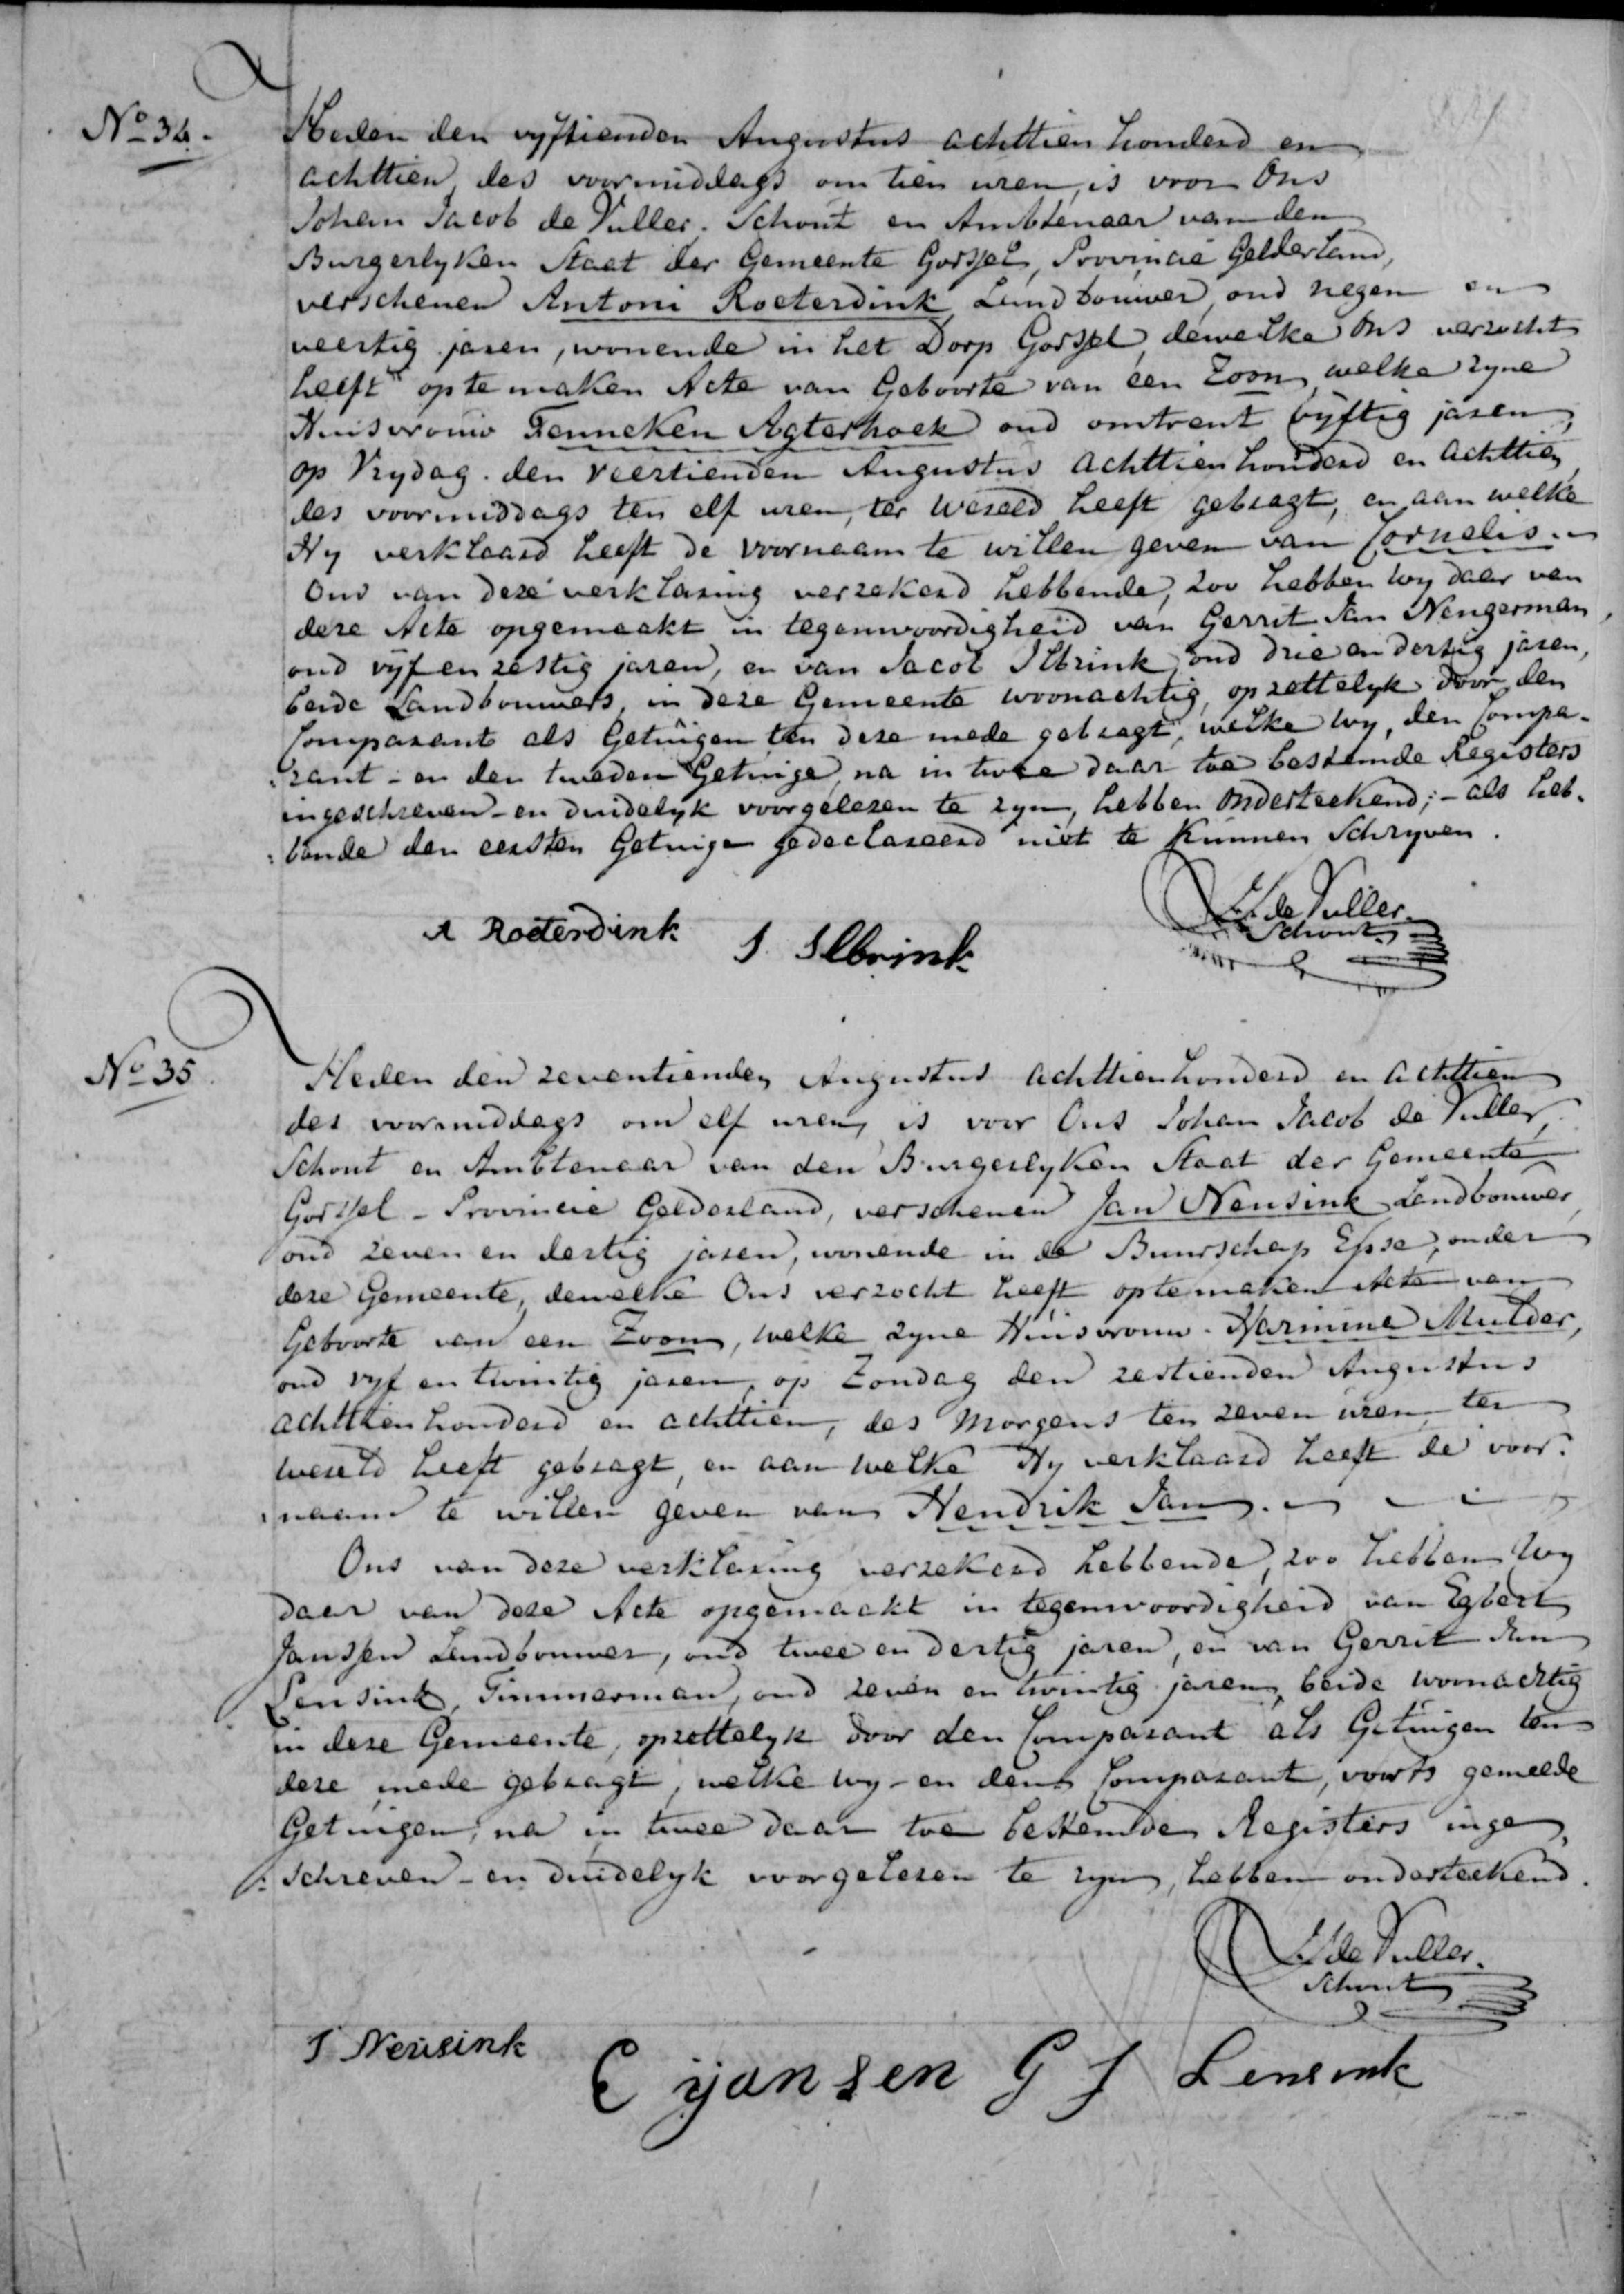 No 34.
Heden den vyftienden Augustus achttien honderd en
achttien, des voormiddags om tien uren, is voor Ons
Johan Jacob de Vuller. Schout en Ambtenaar van den
Burgerlyken Staat der Gemeente Gorssel, Provincie Gelderland,
verschenen Antoni Roeterdink Landbouwer, oud negen en
veertig jaren, wonende in het Dorp Gorssel, dewelke Ons verzocht
heeft op te maken Acte van Geboorte van een Zoon, welke zyne
Huisvrouw Fenneken Agterhoek oud omtrent vyftig jaren,
op Vrydag den veertienden Augustus achttien honderd en achttien
des voormiddags ten elf uren, ter Wereld heeft gebragt, en aan welke
Hy verklaard heeft de voornaam te willen geven van Cornelis.
Ons van deze verklaring verzekerd hebbende, zoo hebben Wy daar van
deze Acte opgemaakt in tegenwoordigheid van Gerrit Jan Nengerman,
oud vyf en zestig jaren, en van Jacob Ilbrink, oud drie en dertig jaren,
beide Landbouwers, in deze Gemeente woonachtig, opzettelyk door den
Comparant als Getuigen ten deze mede gebragt, welke Wy, den Compa-
:rant - en den tweeden Getuige, na in twee daar toe bestemde Registers
ingeschreven - en duidelyk voorgelezen te zyn, hebben Onderteekend; - als heb-
:bende den eersten Getuige gedeclareerd niet te kunnen Schryven.
J. J. de Vuller.
Schout
A Roeterdink
J. Ilbrink
No 35.
Heden den zeventienden Augustus achttienhonderd en achttien
des voormiddags om elf uren, is voor Ons Johan Jacob de Vuller,
Schout en Ambtenaar van den Burgerlyken Staat der Gemeente
Gorssel - Provincie Gelderland, verschenen Jan Neusink Landbouwer,
oud zeven en dertig jaren, wonende in de Buurschap Epse, onder
deze Gemeente, dewelke Ons verzocht heeft op te maken Acte van
Geboorte van een Zoon, welke zyne Huisvrouw. Harmina Mulder,
oud vyf en twintig jaren, op Zondag den zestienden Augustus
achttienhonderd en achttien, des Morgens ten zeven uren ter
wereld heeft gebragt, en aan welke Hy verklaard heeft de voor:
:naam te willen geven van Hendrik Jan.
Ons van deze verklaring verzekerd hebbende, zoo hebben Wy
daar van deze Acte opgemaakt in tegenwoordigheid van Egbert
Janssen Landbouwer, oud twee en dertig jaren, en van Gerrit Jan
Lensink, Timmerman, oud zeven en twintig jaren, beide woonachtig
in deze Gemeente, opzettelyk door den Comparant als Getuigen ten
deze mede gebragt, welke Wy - en den Comparant, voorts gemelde
Getuigen, na in twee daar toe bestemde Registers inge
:schreven - en duidelyk voorgelezen te zyn, hebben onderteekend.
J. J. de Vuller.
Schout
J Neusink
E yansen G J Lensink